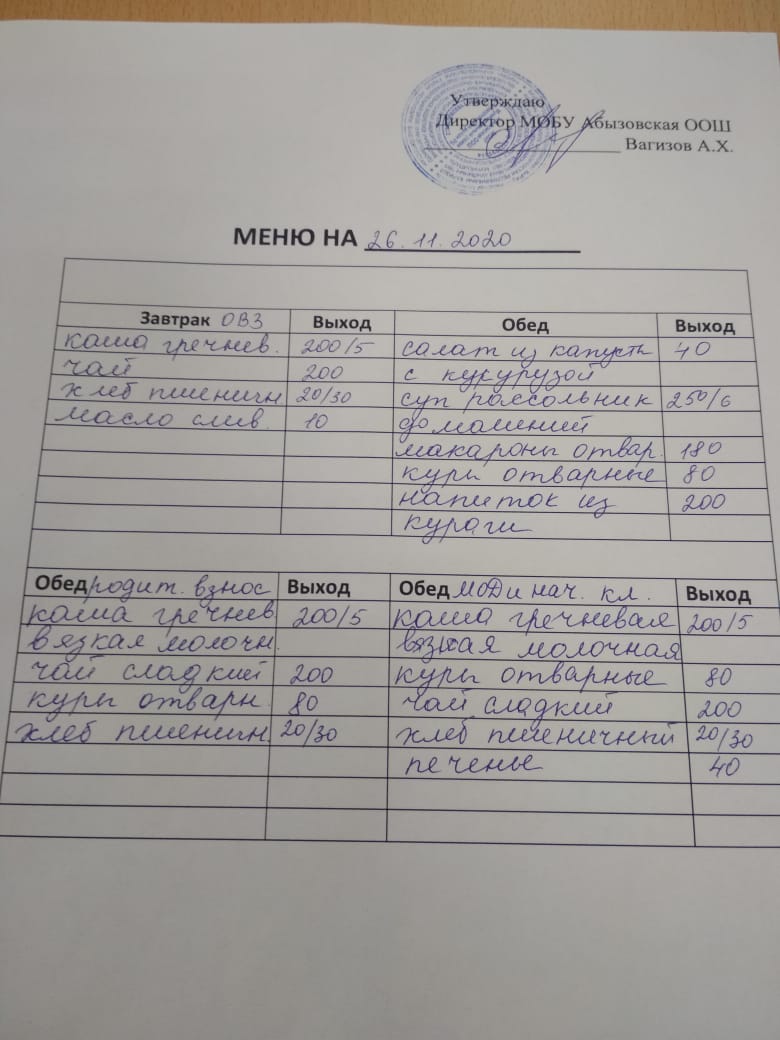 Утверждаю
Директор МОБУ Абызовская ООШ
Вагизов А.Х.
МЕНЮ НА 26.11.2020
Завтрак ОВЗ Выход Обед Выход
каша гречнев. 200/5 салат из капусты 40
чай 200 с кукурузой
хлеб пшеничн 20/30 суп рассольник 250/6
масло слив. 10 домашний
макароны отвар. 180
куры отварные 80
напиток из 200
кураги
Обед родит. взнос Выход Обед МОД и нач. кл. Выход
каша гречнев 200/5 каша гречневая 200/5
вязкая молочн. вязкая молочная
чай сладкий 200 куры отварные 80
куры отварн. 80 чай сладкий 200
хлеб пшеничн. 20/30 хлеб пшеничный 20/30
печенье 40